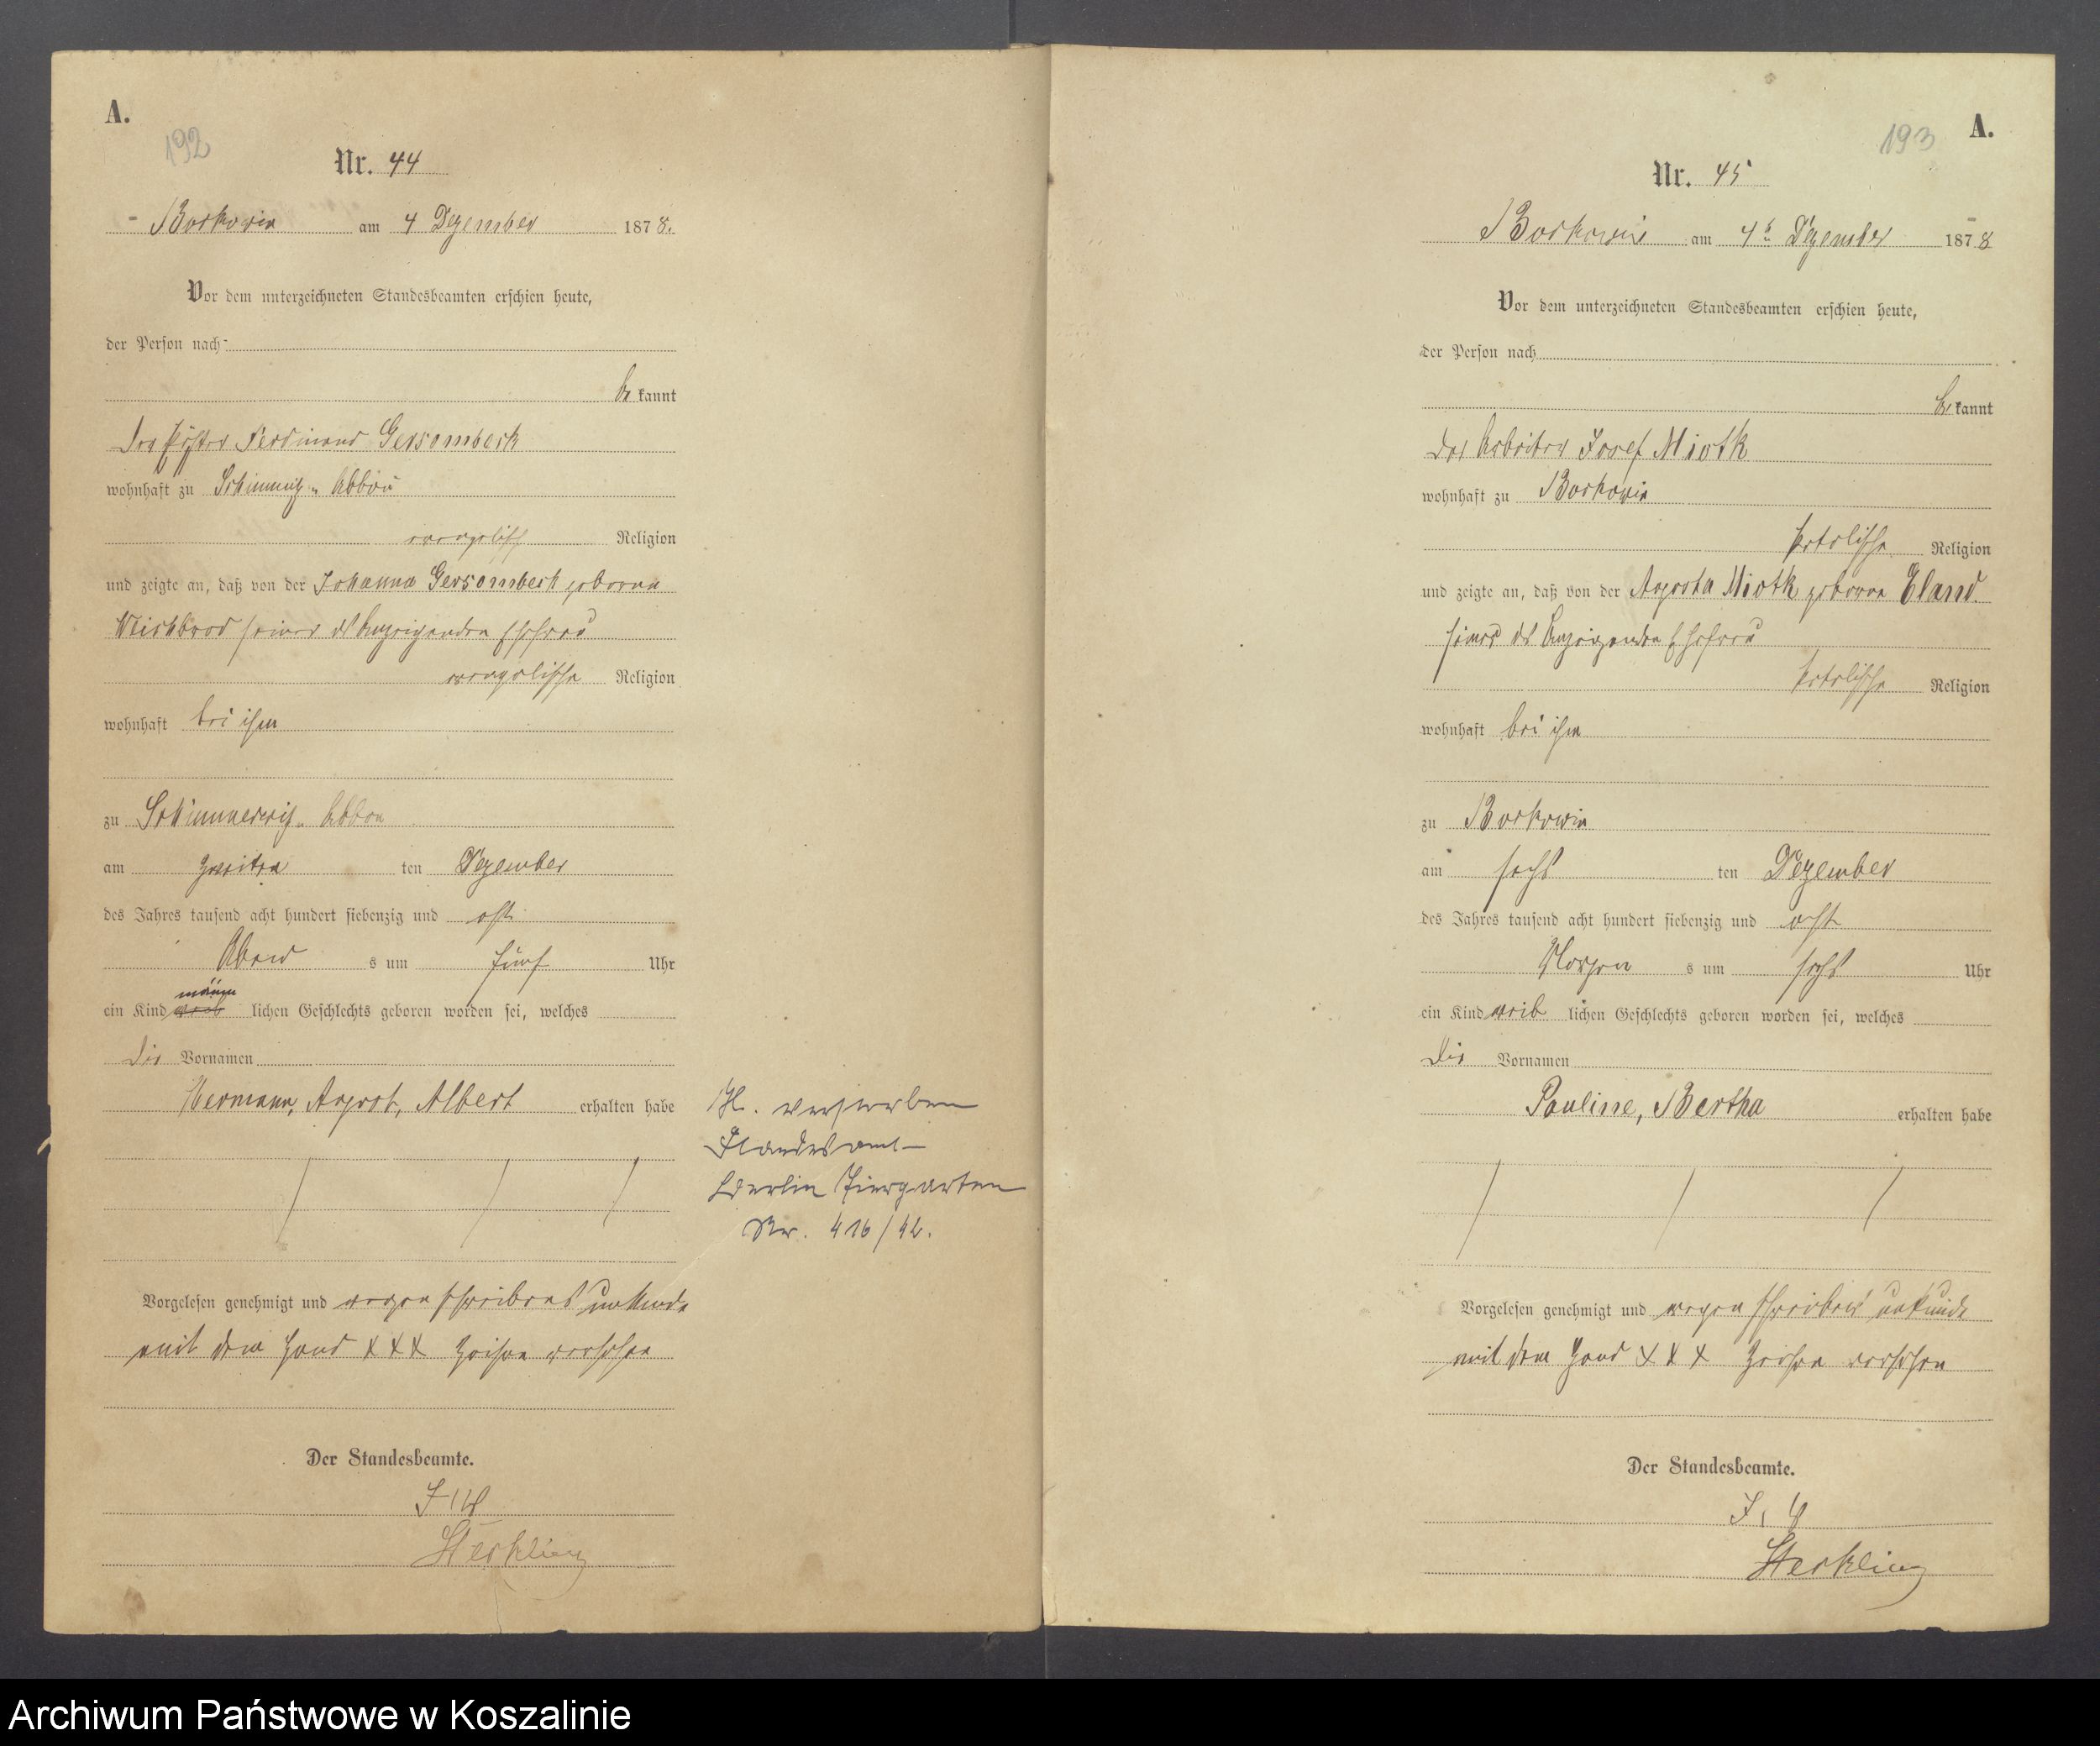 A.
192
Nr. 44
Borkowin am 4 Dezember 1878.
Vor dem unterzeichneten Standesbeamten erschien heute,
der Person nach
be kannt
Ferdinand Gersombeck
wohnhaft zu Schimmerwitz Abbau
evangelisch Religion
und zeigte an, daß von der Johanna Gersombeck geborene
Weichbrod seiner des Anzeigenden Ehefrau
evangelische Religion
wohnhaft bei ihm
zu Schimmerwitz Abbau
am zweiten ten Dezember
des Jahres tausend acht hundert siebenzig und acht
Abend s um fünf Uhr
männ
ein Kind weib lichen Geschlechts geboren worden sei, welches
die Vornamen
Hermann, August, Albert erhalten habe
H. verstorben
Standesamt
Berlin Tiergarten
Nr. 416/42.
Vorgelesen genehmigt und wegen Schreibens unkunde
mit dem Hand XXX Zeichen versehen
Der Standesbeamte.
I V
Sterkling
A.
193
Nr. 45
Borkowin am 4t Dezember 1878
Vor dem unterzeichneten Standesbeamten erschien heute,
der Person nach
be kannt
der Arbeiter Josef Miotk
wohnhaft zu Borkowin
katolische Religion
und zeigte an, daß von der Augusta Miotk geborene Eland
seiner des Anzeigenden Ehefrau
katolische Religion
wohnhaft bei ihm
zu Borkowin
am sechs ten Dezember
des Jahres tausend acht hundert siebenzig und acht
Morgen s um sechs Uhr
ein Kind weib lichen Geschlechts geboren worden sei, welches
die Vornamen
Pauline, Bertha erhalten habe
Vorgelesen genehmigt und wegen Schreibens unkunde
mit dem Hand XXX Zeichen versehen
Der Standesbeamte.
I. V
Sterkling
Archiwum Państwowe w Koszalinie